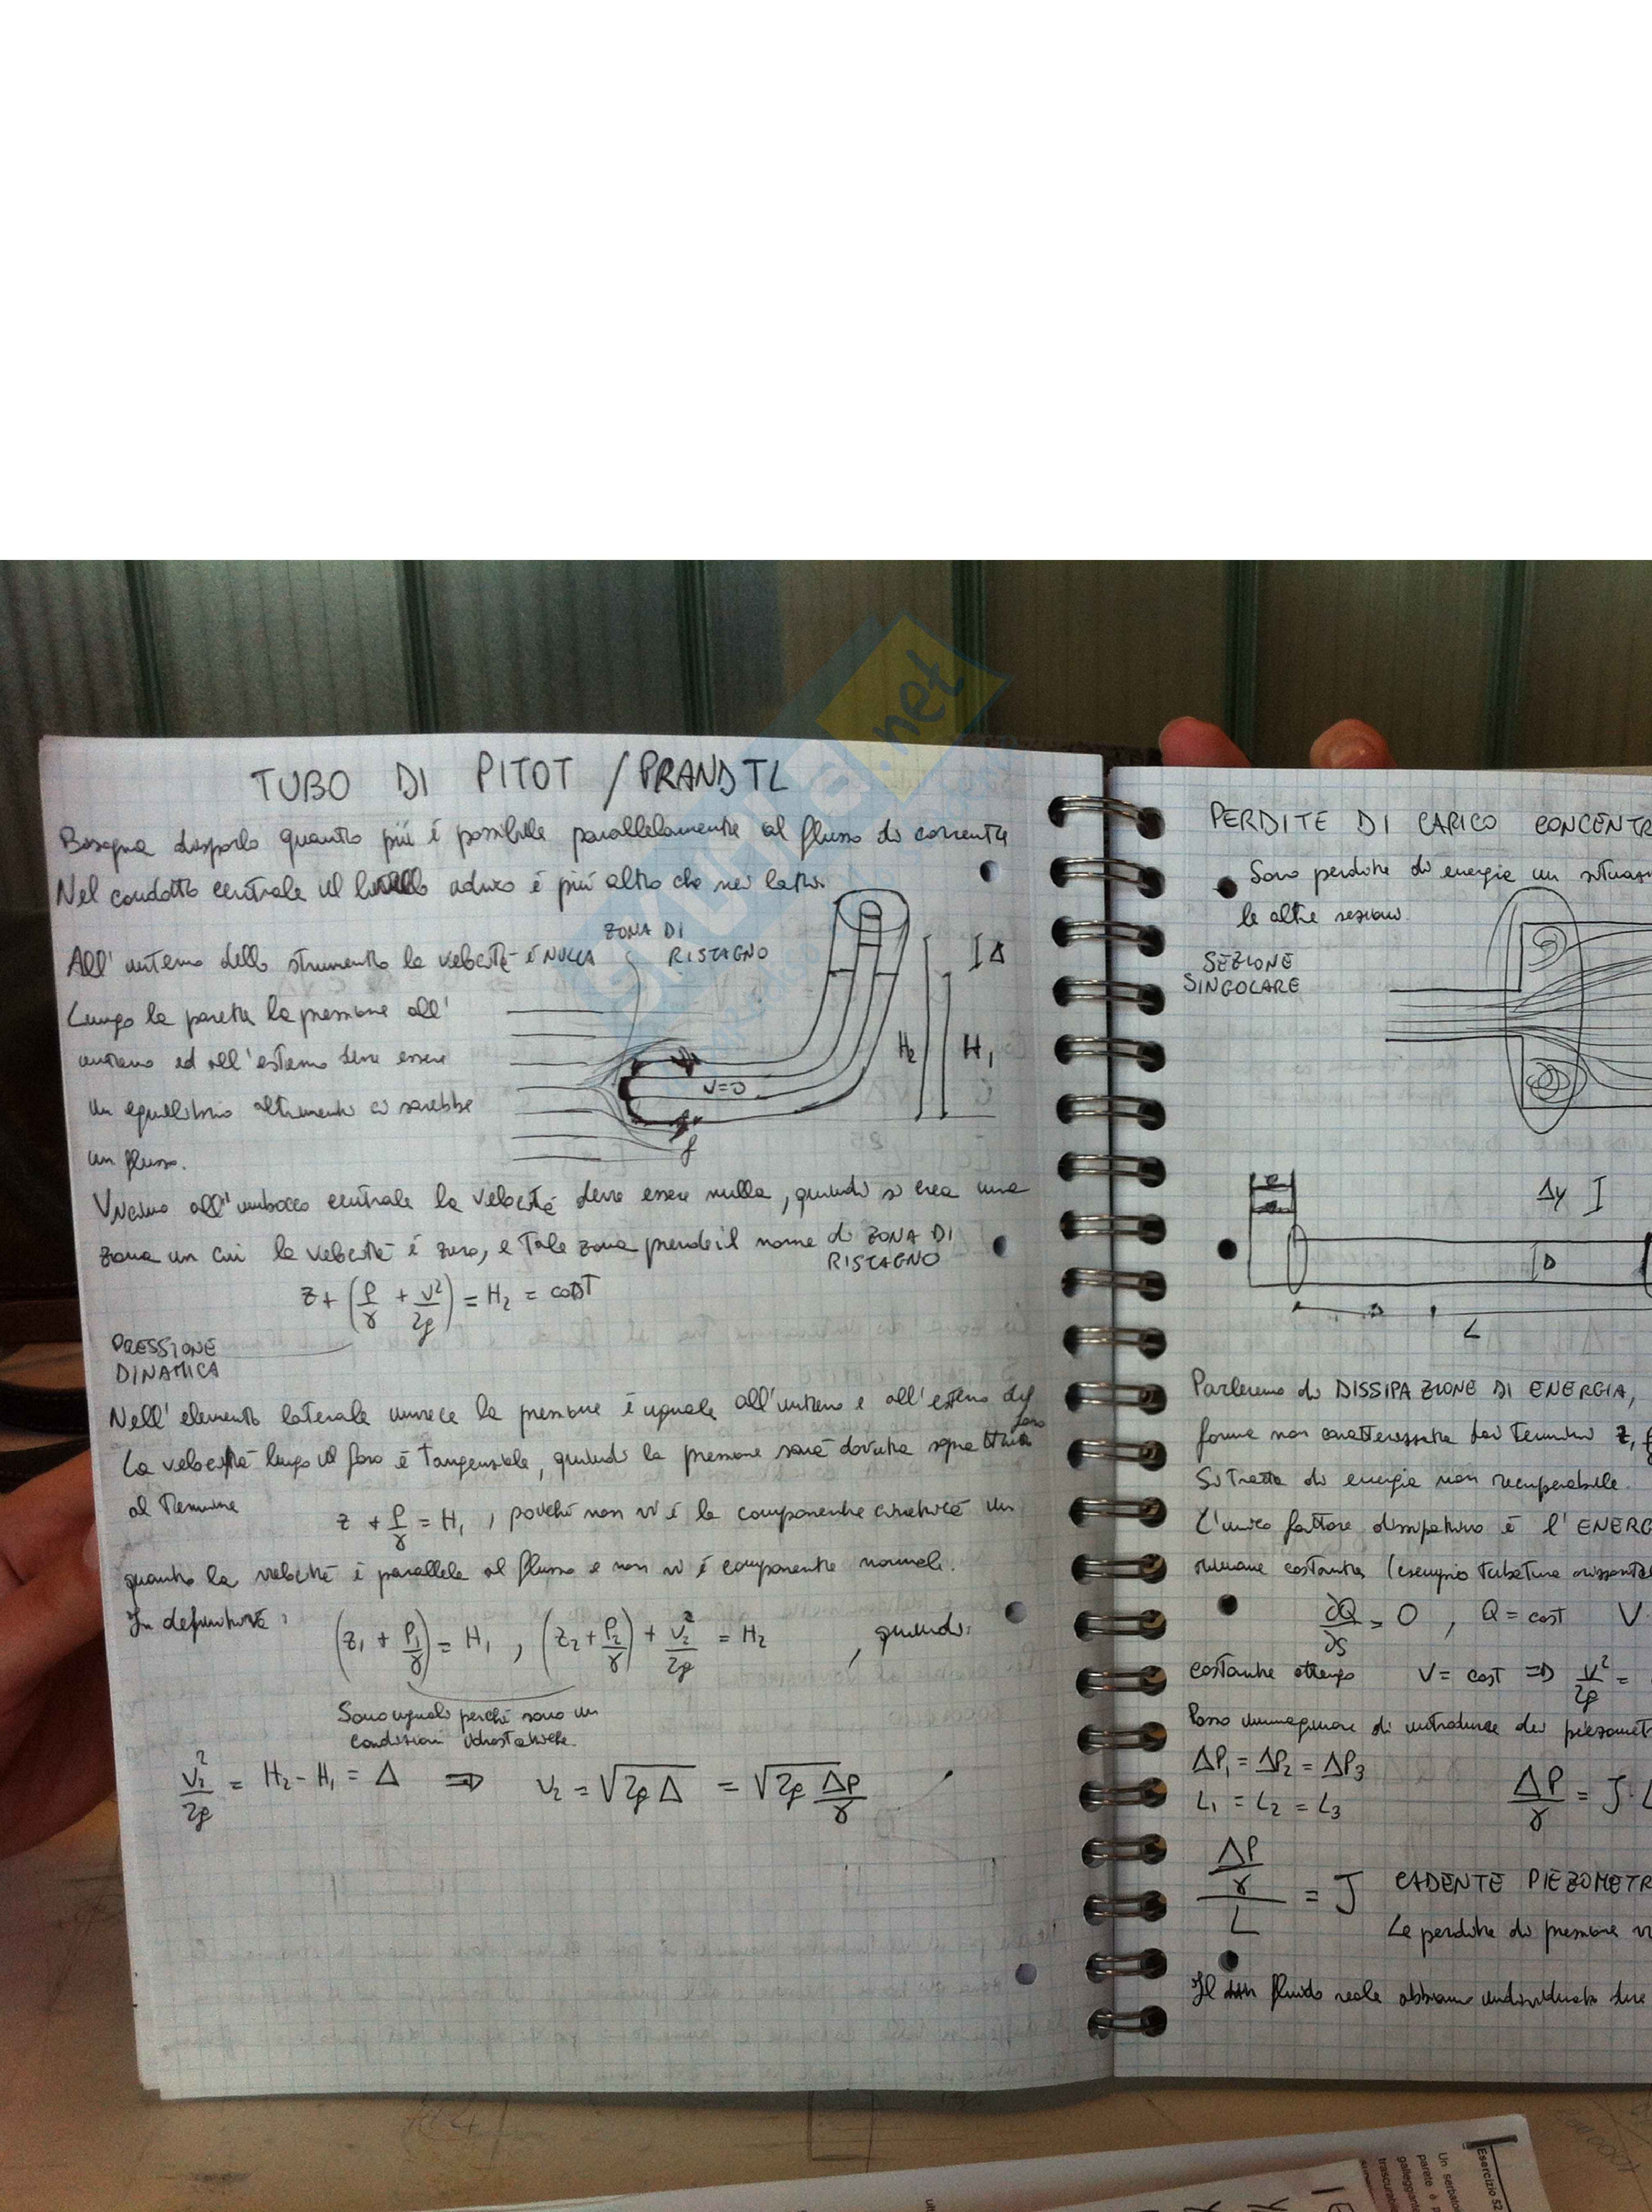 TUBO DI PITOT / PRANDTL
Bisogna disporlo quanto più è possibile parallelamente al flusso di corrente
Nel condotto centrale il livello idrico è più alto che nei latri.
ZONA DI
RISTAGNO
All'interno dello strumento la velocità è NULLA
Lungo la parete la pressione all'
interno ed all'esterno deve essere
in equilibrio altrimenti ci sarebbe
un flusso.
Δ
H₂
H₁
v=0
Vicino all'imbocco centrale la velocità deve essere nulla, quindi si crea una
zona in cui la velocità è zero, e tale zona prende il nome di ZONA DI
RISTAGNO
z + (P/γ + v²/2g) = H₂ = cost
PRESSIONE
DINAMICA
Nell'elemento laterale invece la pressione è uguale all'interno e all'esterno del
foro
La velocità lungo il foro è tangenziale, quindi la pressione sarà dovuta
al termine
z + P/γ = H₁ , poiché non vi è la componente cinetica in
quanto la velocità è parallela al flusso e non vi è componente normale.
In definitiva :
(z₁ + P₁/γ) = H₁ , (z₂ + P₂/γ) + v₂²/2g = H₂ , quindi:
Sono uguali perché sono in
condizioni idrostatiche.
v₂²/2g = H₂ - H₁ = Δ ⇒ v₂ = √2gΔ = √2g ΔP/γ
PERDITE DI CARICO CONCENTR
Sono perdite di energia in
le altre sezioni.
SEZIONE
SINGOLARE
Δy
D
L
Parleremo di DISSIPAZIONE DI ENERGIA,
forma non caratterizzata dai termini z,
Si tratta di energia non recuperabile.
L'unico fattore dissipativo è l'ENERG
rimane costante (esempio tubatura
∂Q/∂s = 0 , Q = cost V
costante ottengo V = cost ⇒ v²/2g =
Posso immaginare di introdurre dei piezomet
ΔP₁ = ΔP₂ = ΔP₃
L₁ = L₂ = L₃
ΔP/γ = J · L
ΔP/γ / L = J CADENTE PIEZOMETR
Le perdite di pressione
Il fluido reale abbiamo individuato due
Esercizio 52
Un serbato
parete è p
galleggian
trascurabi
.net